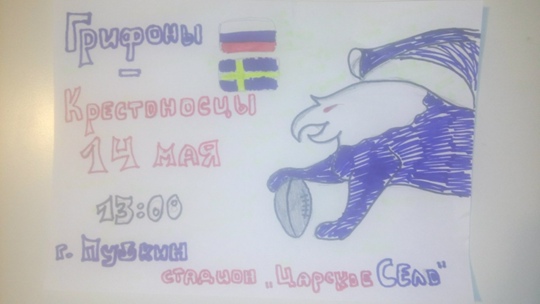 Грифоны
–
Крестоносцы
14 мая
13:00
г. Пушкин
стадион „Царское Село"